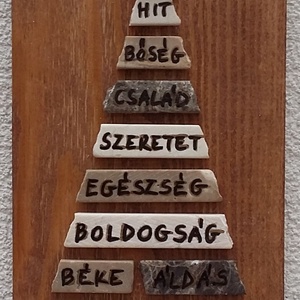 HIT
BŐSÉG
CSALÁD
SZERETET
EGÉSZSÉG
BOLDOGSÁG
BÉKE ÁLDÁS